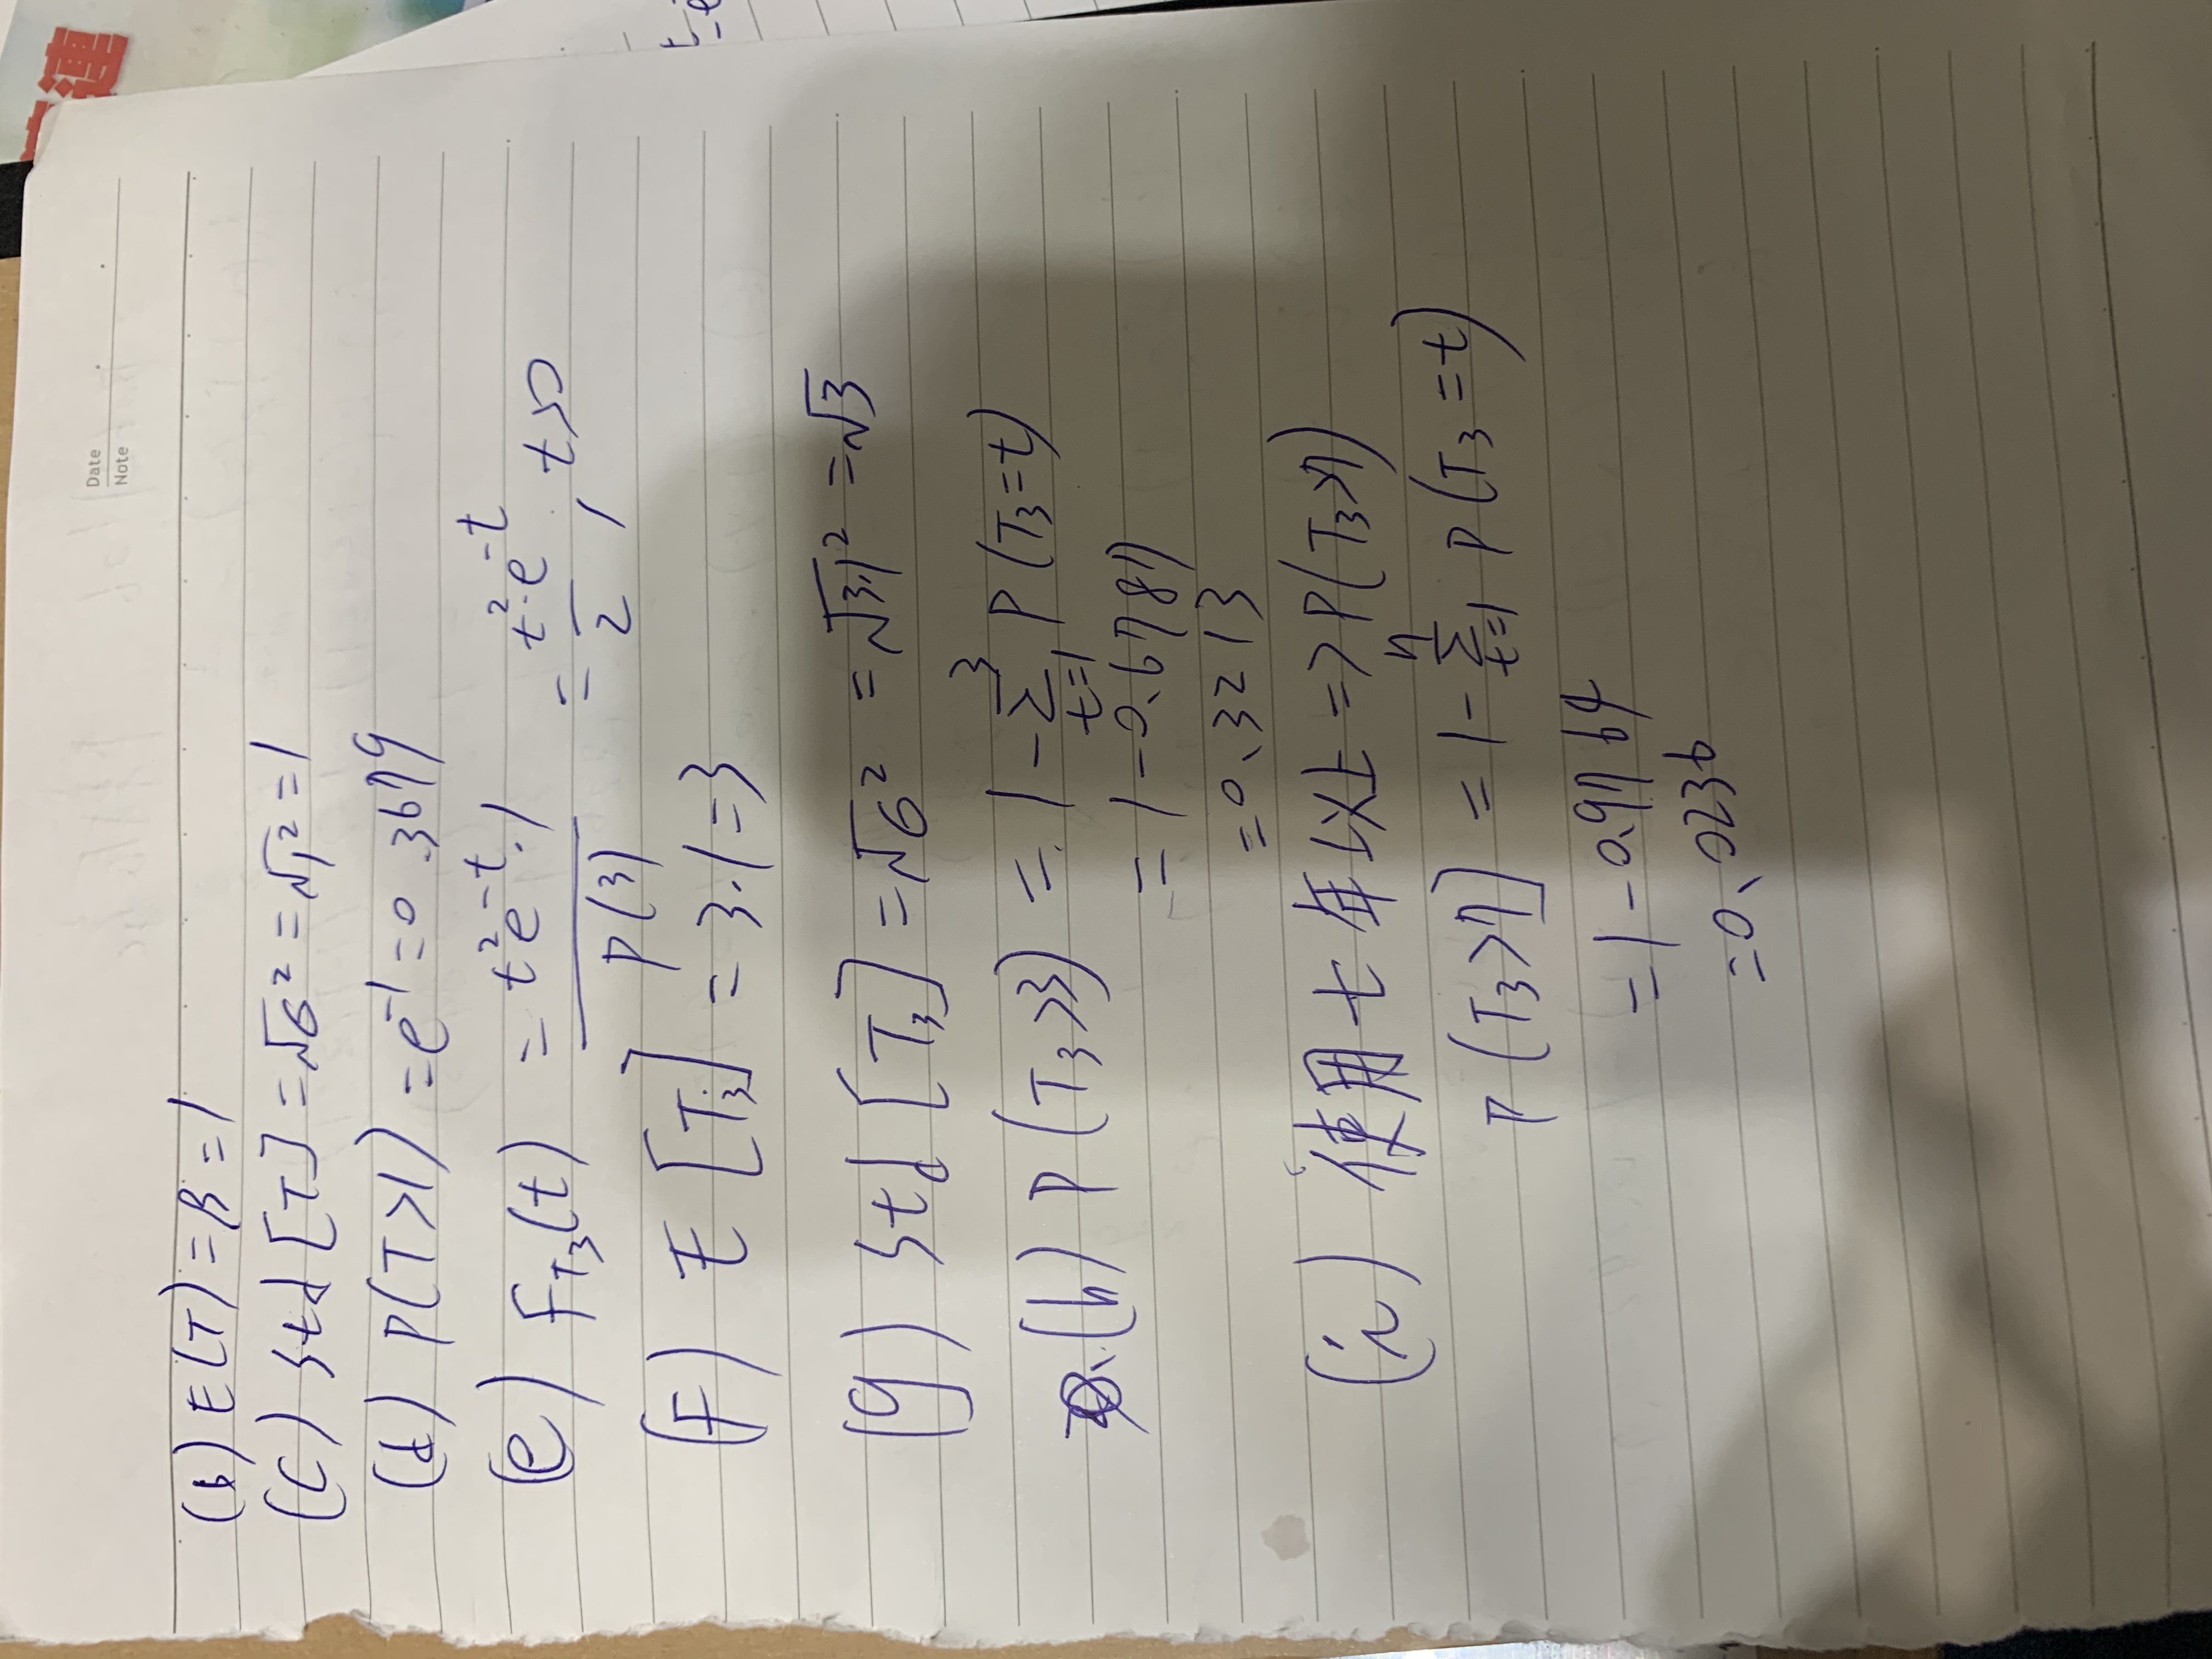 連
Date
Note
(b) E(T) = β = 1
(C) Std [T] = √σ² = √1² = 1
(d) P(T>1) = e⁻¹ = 0.3679
(e) f_T₃(t) = t²e^-t·1 / Γ(3) = t²·e^-t / 2 , t>0
(F) E [T₃] = 3·1 = 3
(g) Std [T₃] = √σ² = √3·1² = √3
(h) P(T₃>3) = 1 - Σ_{t=1}^{3} P(T₃=t)
= 1 - 0.6787
= 0.3213
(i) 使用七年以上 => P(T₃>7)
P(T₃>7] = 1 - Σ_{t=1}^{7} P(T₃=t)
= 1 - 0.9764
= 0.0236